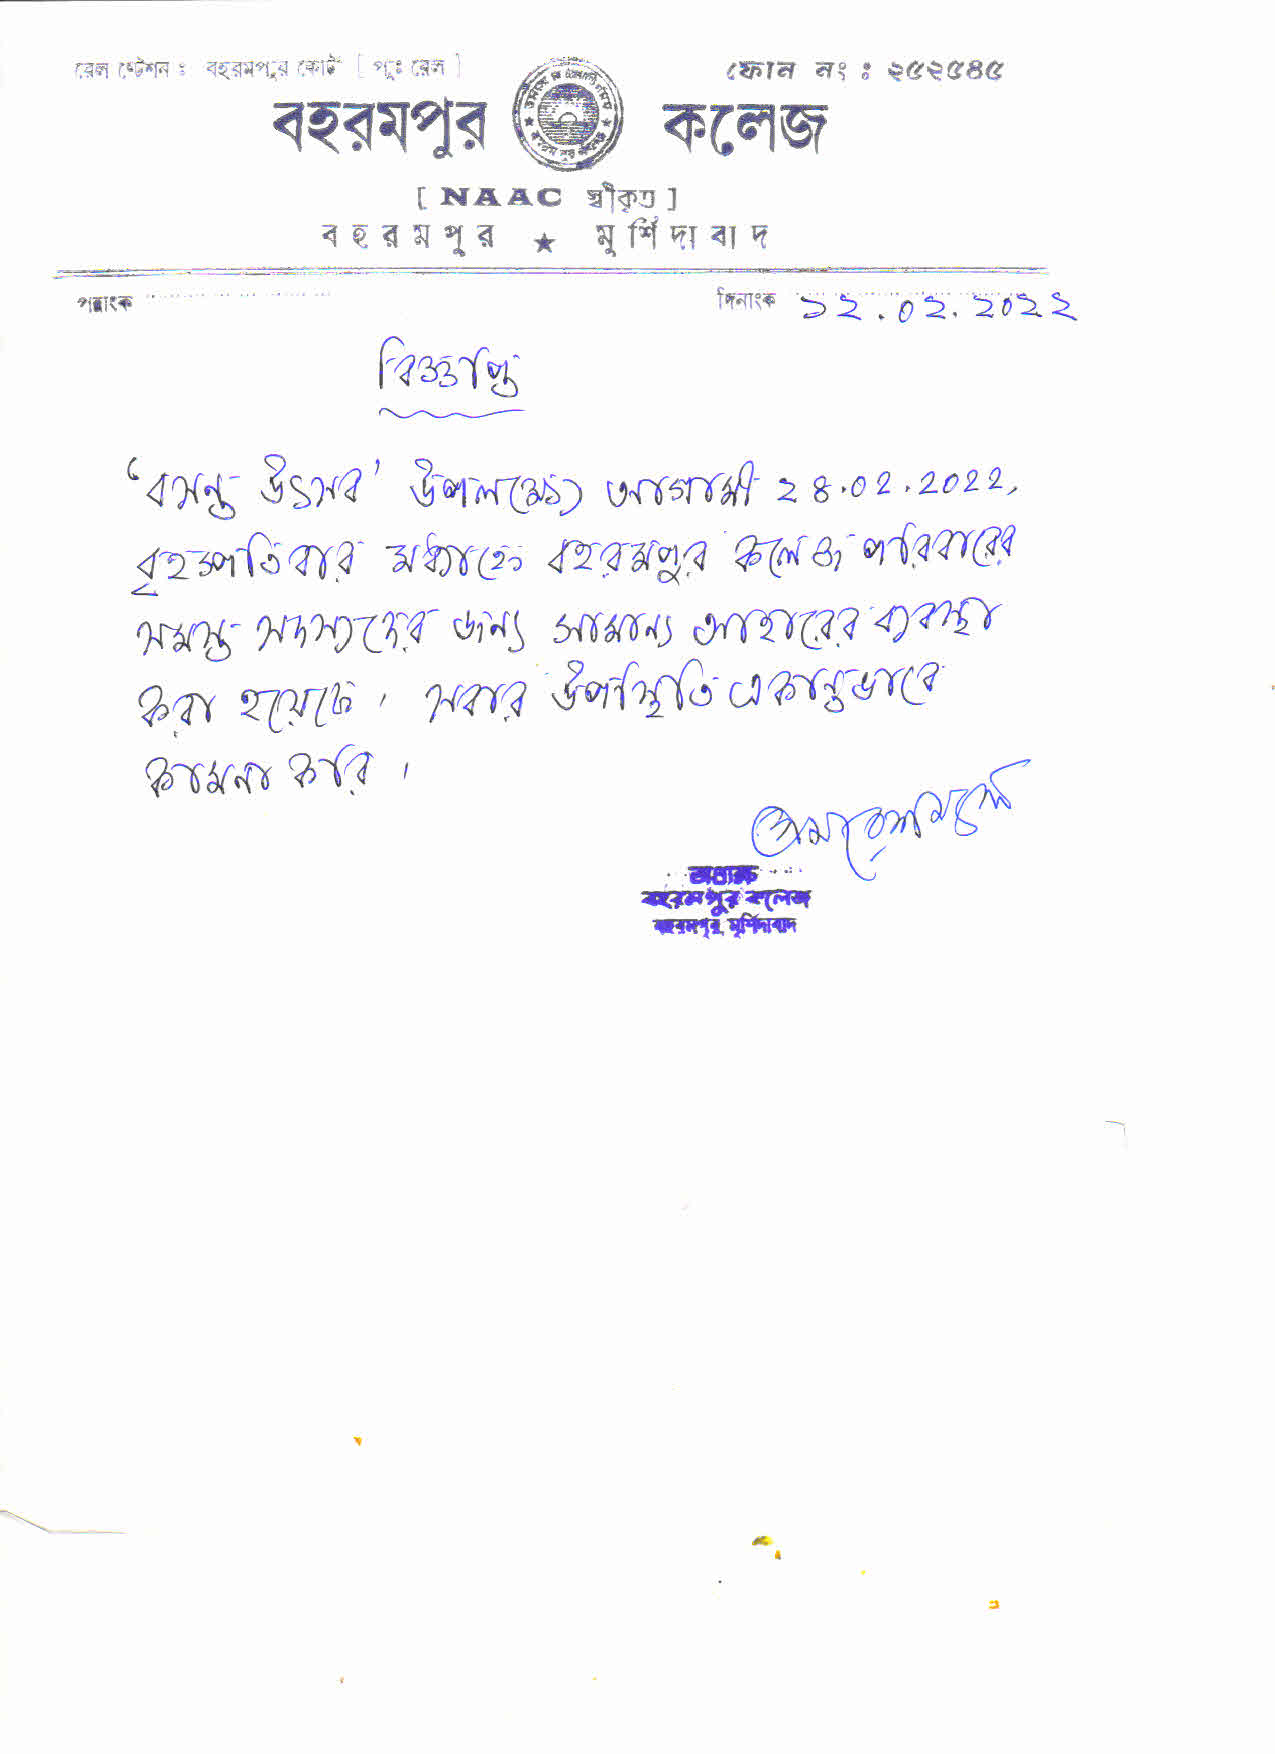 রেল ষ্টেশন : বহরমপুর কোর্ট [ পূঃ রেল ]
ফোন নং : ২৫২৫৪৫
বহরমপুর কলেজ
[ NAAC স্বীকৃত ]
বহরমপুর ★ মুর্শিদাবাদ
পত্রাংক
দিনাংক ১২.০২.২০২২
বিজ্ঞপ্তি
‘বসন্ত উৎসব’ উপলক্ষ্যে আগামী ২৪.০২.২০২২,
বৃহস্পতিবার মধ্যাহ্নে বহরমপুর কলেজ পরিবারের
সমস্ত সদস্যদের জন্য সামান্য আহারের ব্যবস্থা
করা হয়েছে। সবার উপস্থিতি একান্তভাবে
কামনা করি।
অধ্যক্ষ
বহরমপুর কলেজ
বহরমপুর, মুর্শিদাবাদ